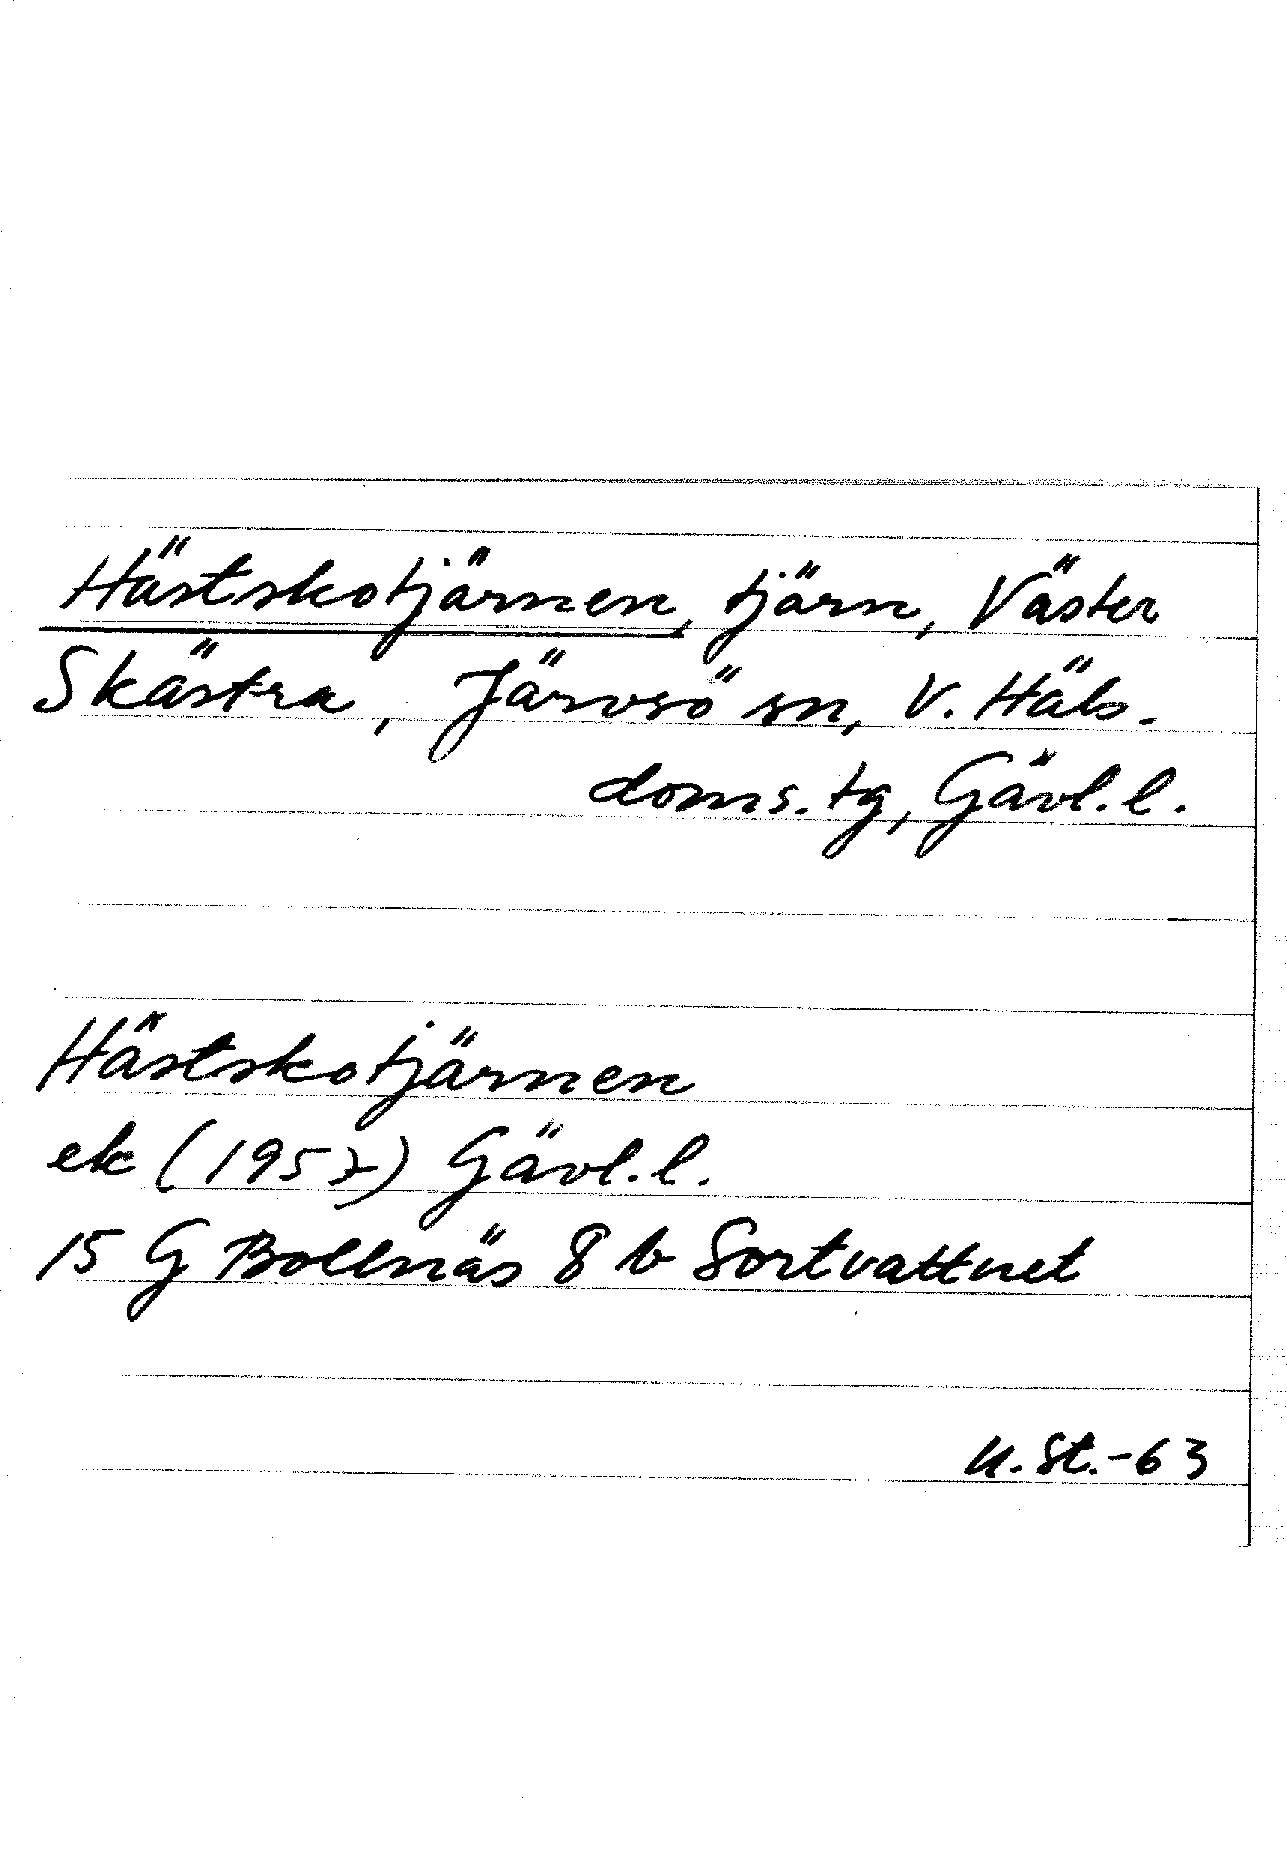 Hästskotjärnen, tjärn, Väster
Skästra, Järvsö sn, V. Häls.
doms.tg, Gävl.l.
Hästskotjärnen
ek (1957) Gävl.l.
15 G Bollnäs 8 b Sortvattnet
U.St.-63